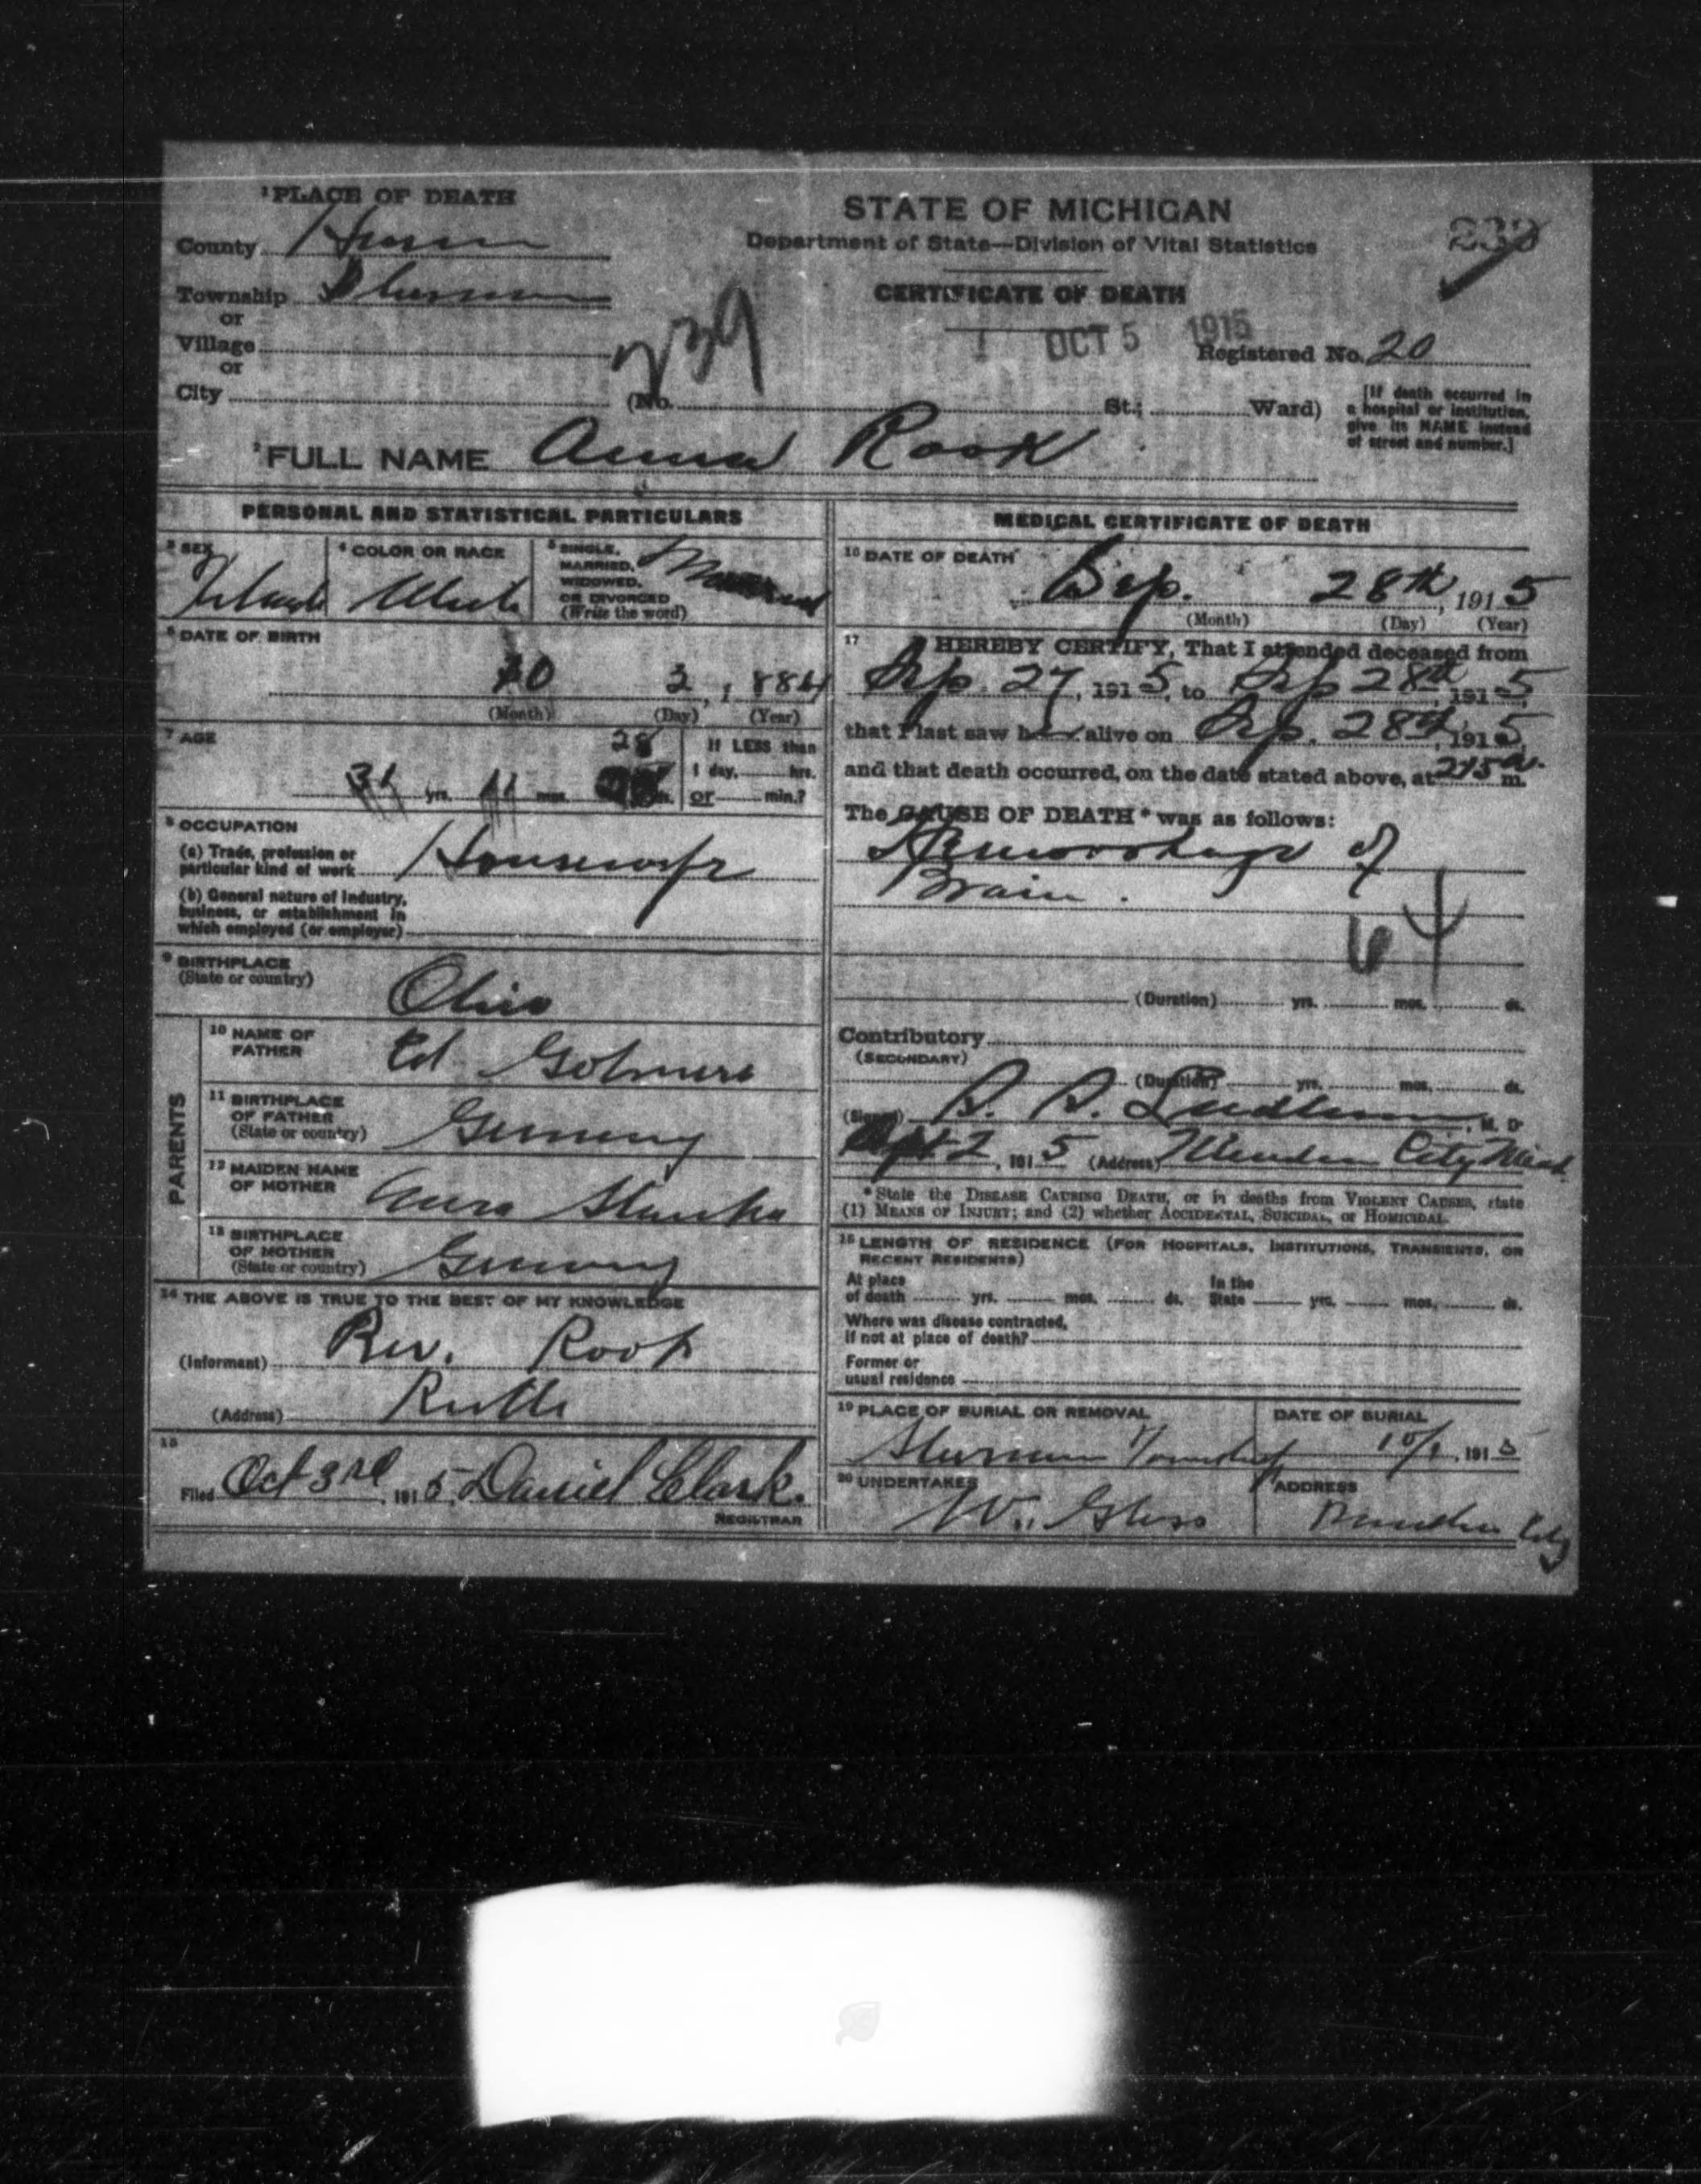 1 PLACE OF DEATH
County Huron
Township Sherman
or
Village
or
City
STATE OF MICHIGAN
Department of State—Division of Vital Statistics
CERTIFICATE OF DEATH
OCT 5 1915
239
Registered No. 20
(No. St.; Ward)
[If death occurred in
a hospital or institution,
give its NAME instead
of street and number.]
2 FULL NAME Anna Rook
PERSONAL AND STATISTICAL PARTICULARS
3 SEX
4 COLOR OR RACE White
5 SINGLE,
MARRIED,
WIDOWED,
OR DIVORCED
(Write the word)
Married
6 DATE OF BIRTH
10 2, 1884
(Month) (Day) (Year)
7 AGE
28
yrs. 11 mos. ds.
If LESS than
1 day, hrs.
or min.?
8 OCCUPATION
(a) Trade, profession or
particular kind of work Housewife
(b) General nature of industry,
business, or establishment in
which employed (or employer)
9 BIRTHPLACE
(State or country)
Ohio
PARENTS
10 NAME OF
FATHER
Ed
11 BIRTHPLACE
OF FATHER
(State or country) Germany
12 MAIDEN NAME
OF MOTHER
13 BIRTHPLACE
OF MOTHER
(State or country) Germany
14 THE ABOVE IS TRUE TO THE BEST OF MY KNOWLEDGE
(Informant) Rev. Rook
(Address) Ruth
15
Filed Oct 3rd, 1915 Daniel Clark.
REGISTRAR
MEDICAL CERTIFICATE OF DEATH
16 DATE OF DEATH
Sep. 28th, 1915
(Month) (Day) (Year)
17 I HEREBY CERTIFY, That I attended deceased from
Sep. 27, 1915, to Sep 28th, 1915,
that I last saw her alive on Sep. 28th, 1915,
and that death occurred, on the date stated above, at 215 a. m.
The CAUSE OF DEATH* was as follows:
Hemorrhage of
Brain.
64
(Duration) yrs. mos. ds.
Contributory
(SECONDARY)
(Duration) yrs. mos. ds.
(Signed) , M. D.
2, 1915 (Address) Minden City Mich
*State the DISEASE CAUSING DEATH, or in deaths from VIOLENT CAUSES, state
(1) MEANS OF INJURY; and (2) whether ACCIDENTAL, SUICIDAL, or HOMICIDAL.
18 LENGTH OF RESIDENCE (FOR HOSPITALS, INSTITUTIONS, TRANSIENTS, OR
RECENT RESIDENTS)
At place
of death yrs. mos. ds.
In the
State yrs. mos. ds.
Where was disease contracted,
if not at place of death?
Former or
usual residence
19 PLACE OF BURIAL OR REMOVAL
Sherman Township
DATE OF BURIAL
10/1, 1915
20 UNDERTAKER
W.
ADDRESS
Minden City